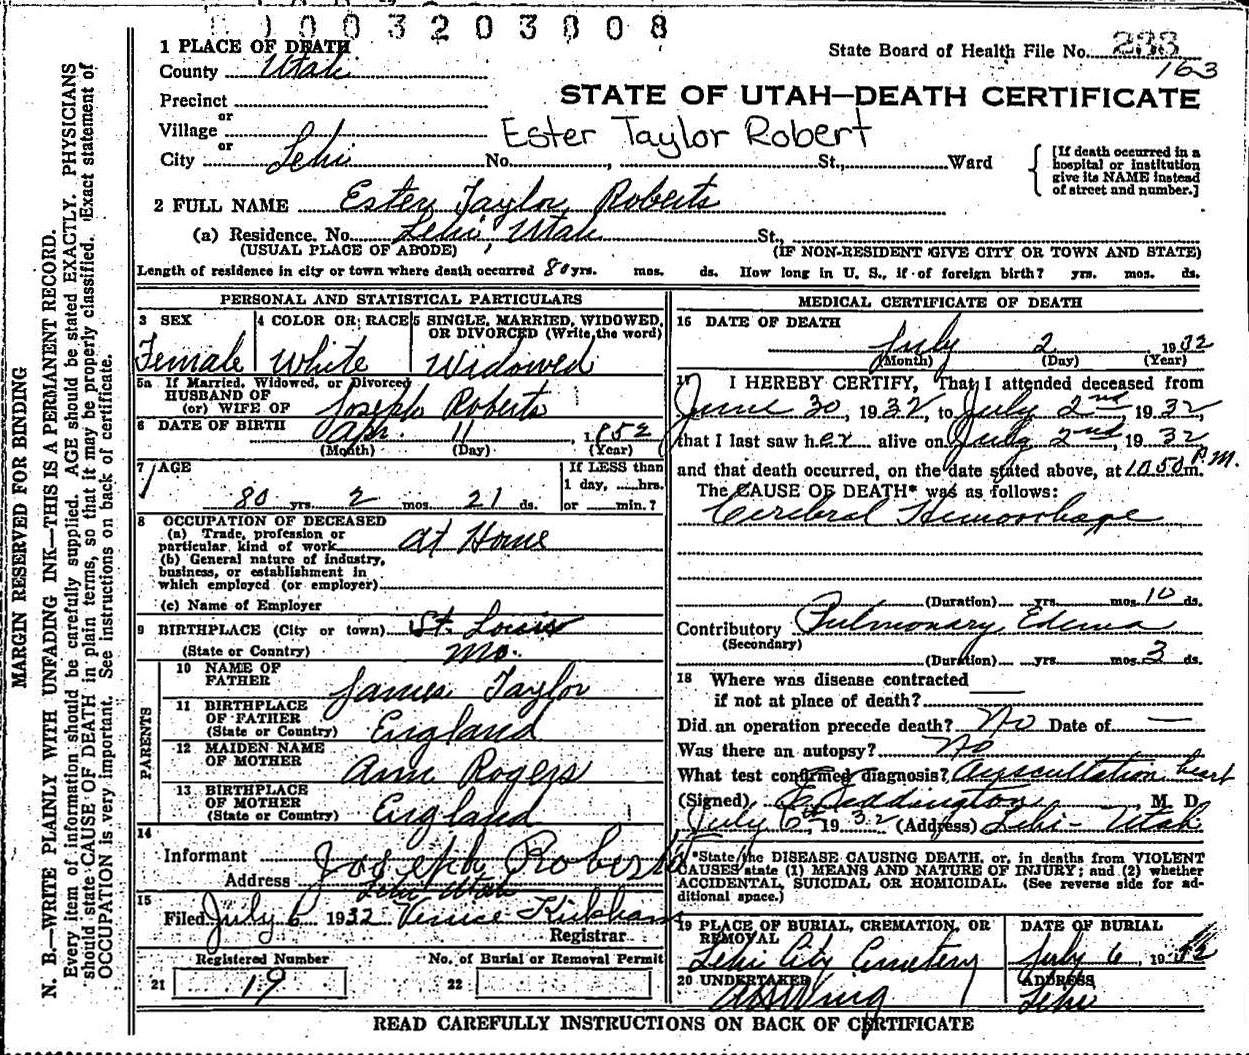 0 1 0 0 3 2 0 3 0 0 8
1 PLACE OF DEATH
State Board of Health File No. 233
163
County Utah
Precinct
STATE OF UTAH—DEATH CERTIFICATE
or
Village
Ester Taylor Robert
or
City Lehi No. , St., Ward
[If death occurred in a hospital or institution give its NAME instead of street and number.]
2 FULL NAME Ester Taylor Roberts
(a) Residence. No. Lehi Utah St.,
(USUAL PLACE OF ABODE) (IF NON-RESIDENT GIVE CITY OR TOWN AND STATE)
Length of residence in city or town where death occurred 80 yrs. mos. ds. How long in U. S., if of foreign birth? yrs. mos. ds.
PERSONAL AND STATISTICAL PARTICULARS
3 SEX Female
4 COLOR OR RACE White
5 SINGLE, MARRIED, WIDOWED, OR DIVORCED (Write the word) Widowed
5a If Married, Widowed, or Divorced
HUSBAND OF
(or) WIFE OF Joseph Roberts
6 DATE OF BIRTH Apr. 11, 1852
(Month) (Day) (Year)
7 AGE
80 yrs. 2 mos. 21 ds.
If LESS than
1 day, ......hrs.
or ......min.?
8 OCCUPATION OF DECEASED
(a) Trade, profession or
particular kind of work At Home
(b) General nature of industry,
business, or establishment in
which employed (or employer)
(c) Name of Employer
9 BIRTHPLACE (City or town) St. Louis
(State or Country) Mo.
PARENTS
10 NAME OF FATHER James Taylor
11 BIRTHPLACE OF FATHER (State or Country) England
12 MAIDEN NAME OF MOTHER Ann Rogers
13 BIRTHPLACE OF MOTHER (State or Country) England
14
Informant Joseph Roberts
Address Lehi Utah
15
Filed July 6 1932 Venice Kirkham
Registrar
Registered Number No. of Burial or Removal Permit
21 19 22
MEDICAL CERTIFICATE OF DEATH
16 DATE OF DEATH
July 2 1932
(Month) (Day) (Year)
17 I HEREBY CERTIFY, That I attended deceased from
June 30, 1932, to July 2nd, 1932,
that I last saw her alive on July 2nd, 1932
and that death occurred, on the date stated above, at 10 50 P.M. m.
The CAUSE OF DEATH* was as follows:
Cerebral Hemorrhage
(Duration) yrs. mos. 10 ds.
Contributory Pulmonary Edema
(Secondary)
(Duration) yrs. mos. 3 ds.
18 Where was disease contracted
if not at place of death?
Did an operation precede death? No Date of —
Was there an autopsy? No
What test confirmed diagnosis? Auscultation heart
(Signed) E Eddington, M. D.
July 6th, 1932 (Address) Lehi - Utah
*State the DISEASE CAUSING DEATH, or, in deaths from VIOLENT
CAUSES state (1) MEANS AND NATURE OF INJURY; and (2) whether
ACCIDENTAL, SUICIDAL OR HOMICIDAL. (See reverse side for ad-
ditional space.)
19 PLACE OF BURIAL, CREMATION, OR REMOVAL
Lehi City Cemetery
DATE OF BURIAL
July 6, 1932
20 UNDERTAKER
Wing
ADDRESS
Lehi
READ CAREFULLY INSTRUCTIONS ON BACK OF CERTIFICATE
MARGIN RESERVED FOR BINDING
N. B.—WRITE PLAINLY WITH UNFADING INK—THIS IS A PERMANENT RECORD.
Every item of information should be carefully supplied. AGE should be stated EXACTLY. PHYSICIANS
should state CAUSE OF DEATH in plain terms, so that it may be properly classified. Exact statement of
OCCUPATION is very important. See instructions on back of certificate.